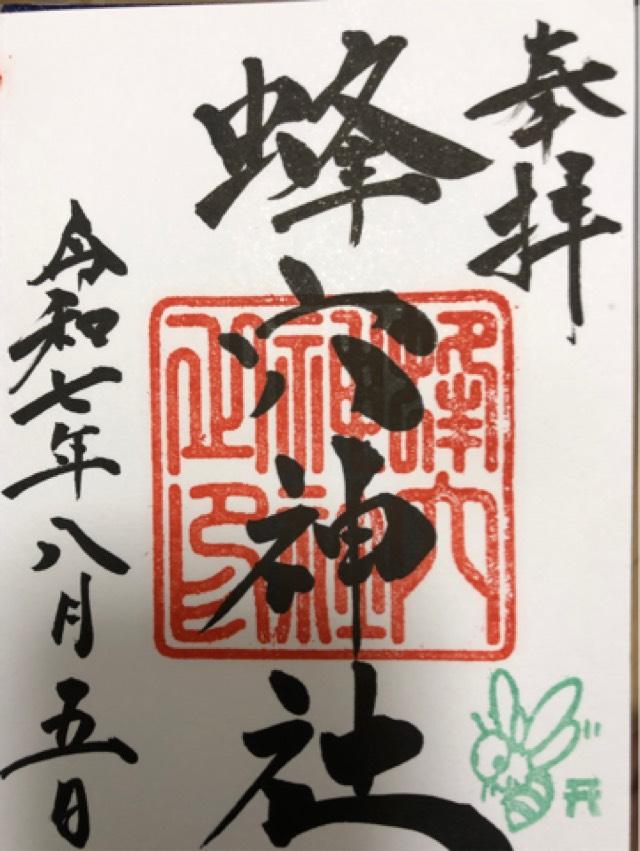 奉拝
蜂穴神社
蜂穴
神社
之印
令和七年八月五日